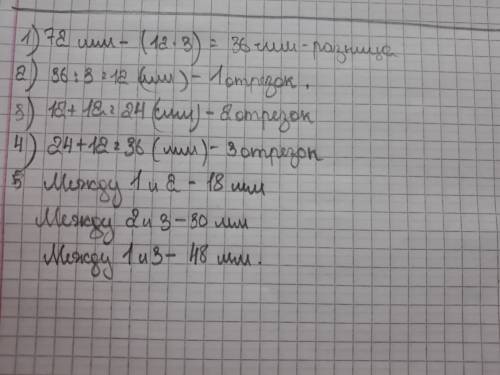 1) 72 мм - (12·3) = 36 мм - разница
2) 36:3=12 (мм) - 1 отрезок.
3) 12+12=24 (мм) - 2 отрезок
4) 24+12=36 (мм) - 3 отрезок
5 Между 1 и 2 - 18 мм
Между 2 и 3 - 30 мм
Между 1 и 3 - 48 мм.